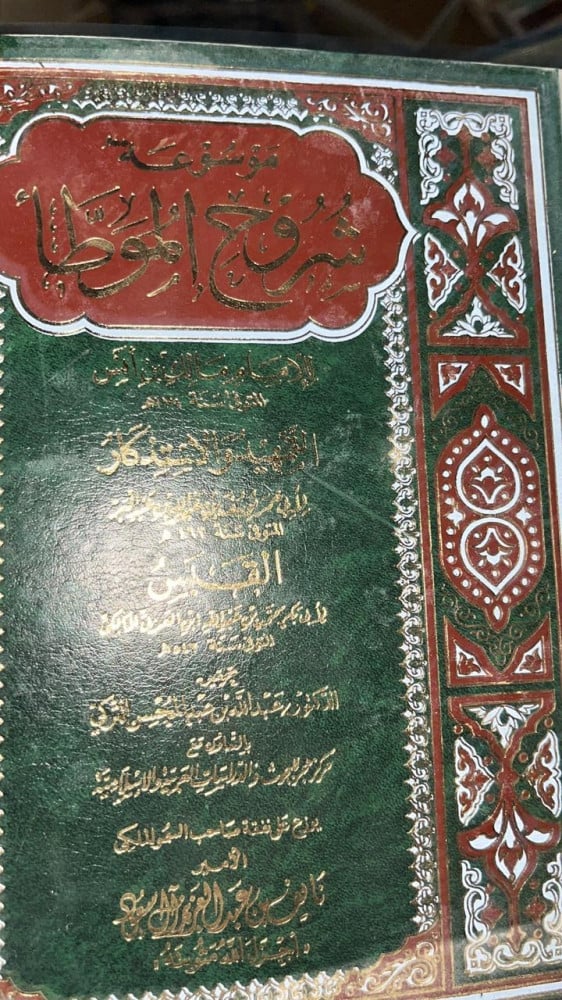 مَوْسُوعَة
شُرُوحِ المُوَطَّأ
للإمام مالك بن أنس
المتوفى سنة ١٧٩هـ
التمهيد والاستذكار
لأبي عمر يوسف بن عبد الله بن عبد البر
المتوفى سنة ٤٦٣هـ
القبس
لأبي بكر محمد بن عبد الله ابن العربي المالكي
المتوفى سنة ٥٤٣هـ
تحقيق
الدكتور عبد الله بن عبد المحسن التركي
بالتعاون مع
مركز هجر للبحوث والدراسات العربية والإسلامية
يوزع على نفقة صاحب السمو الملكي
الأمير
نايف بن عبد العزيز آل سعود